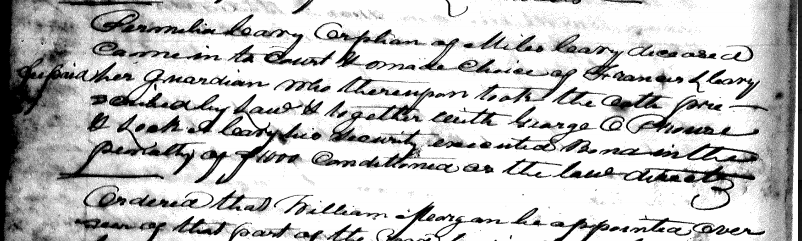 Permelia Leary Orphan of Miles Leary deceased
Came in to Court & made Choice of Frances L Leary
her Guardian who thereupon took the oath pre-
scribed by Law & together with George C
& Leary his Security executed Bond in the
penalty of $1000 Conditioned as the law directs
Ordered that William Morgan be appointed Over
seer of that part of the